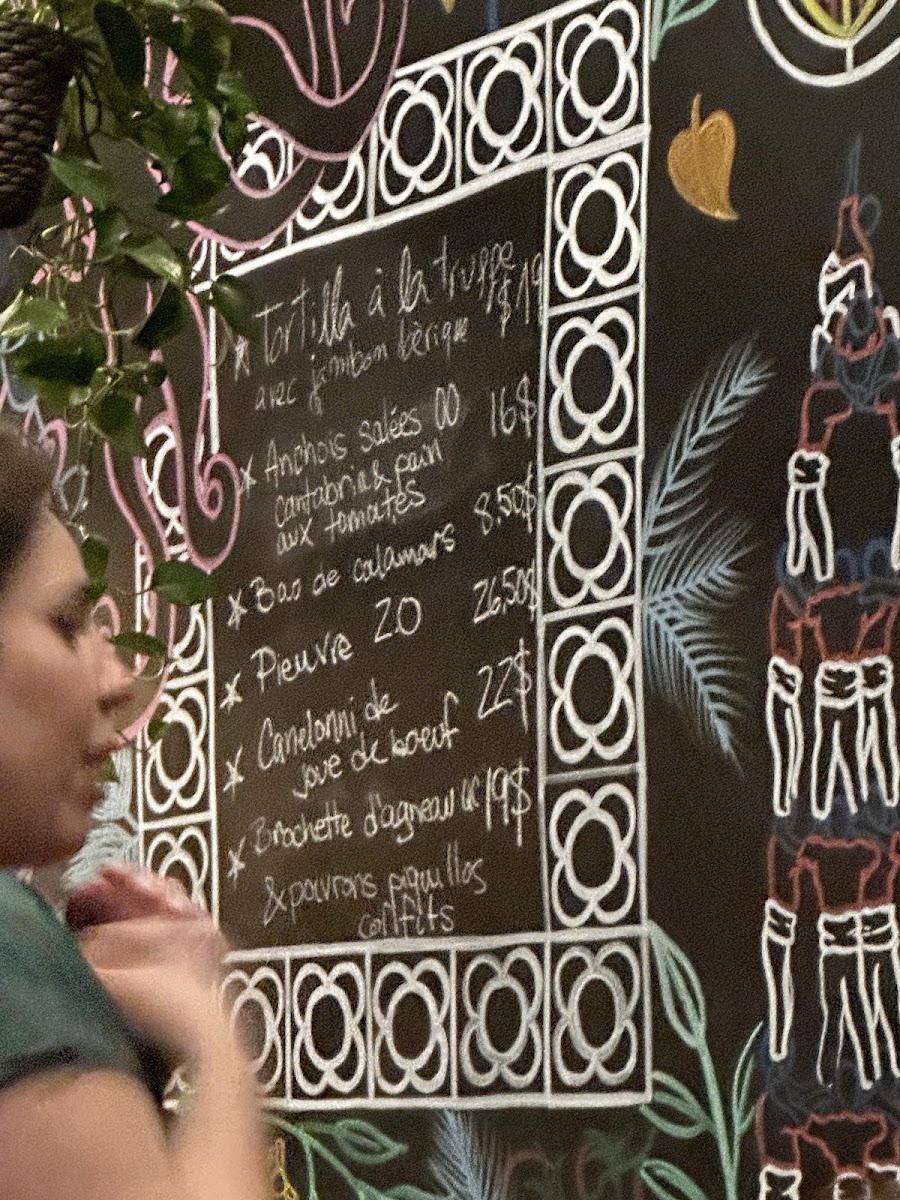 * Tortilla à la truffe
avec jambon ibérique $19
* Anchois salées 00 16$
cantabria & pain
aux tomates
* Bao de calamars 8.50$
* Pieuvre 2.0 26,50$
* Canelonni de
joue de boeuf 22$
* Brochette d'agneau 19$
& poivrons piquillos
confits